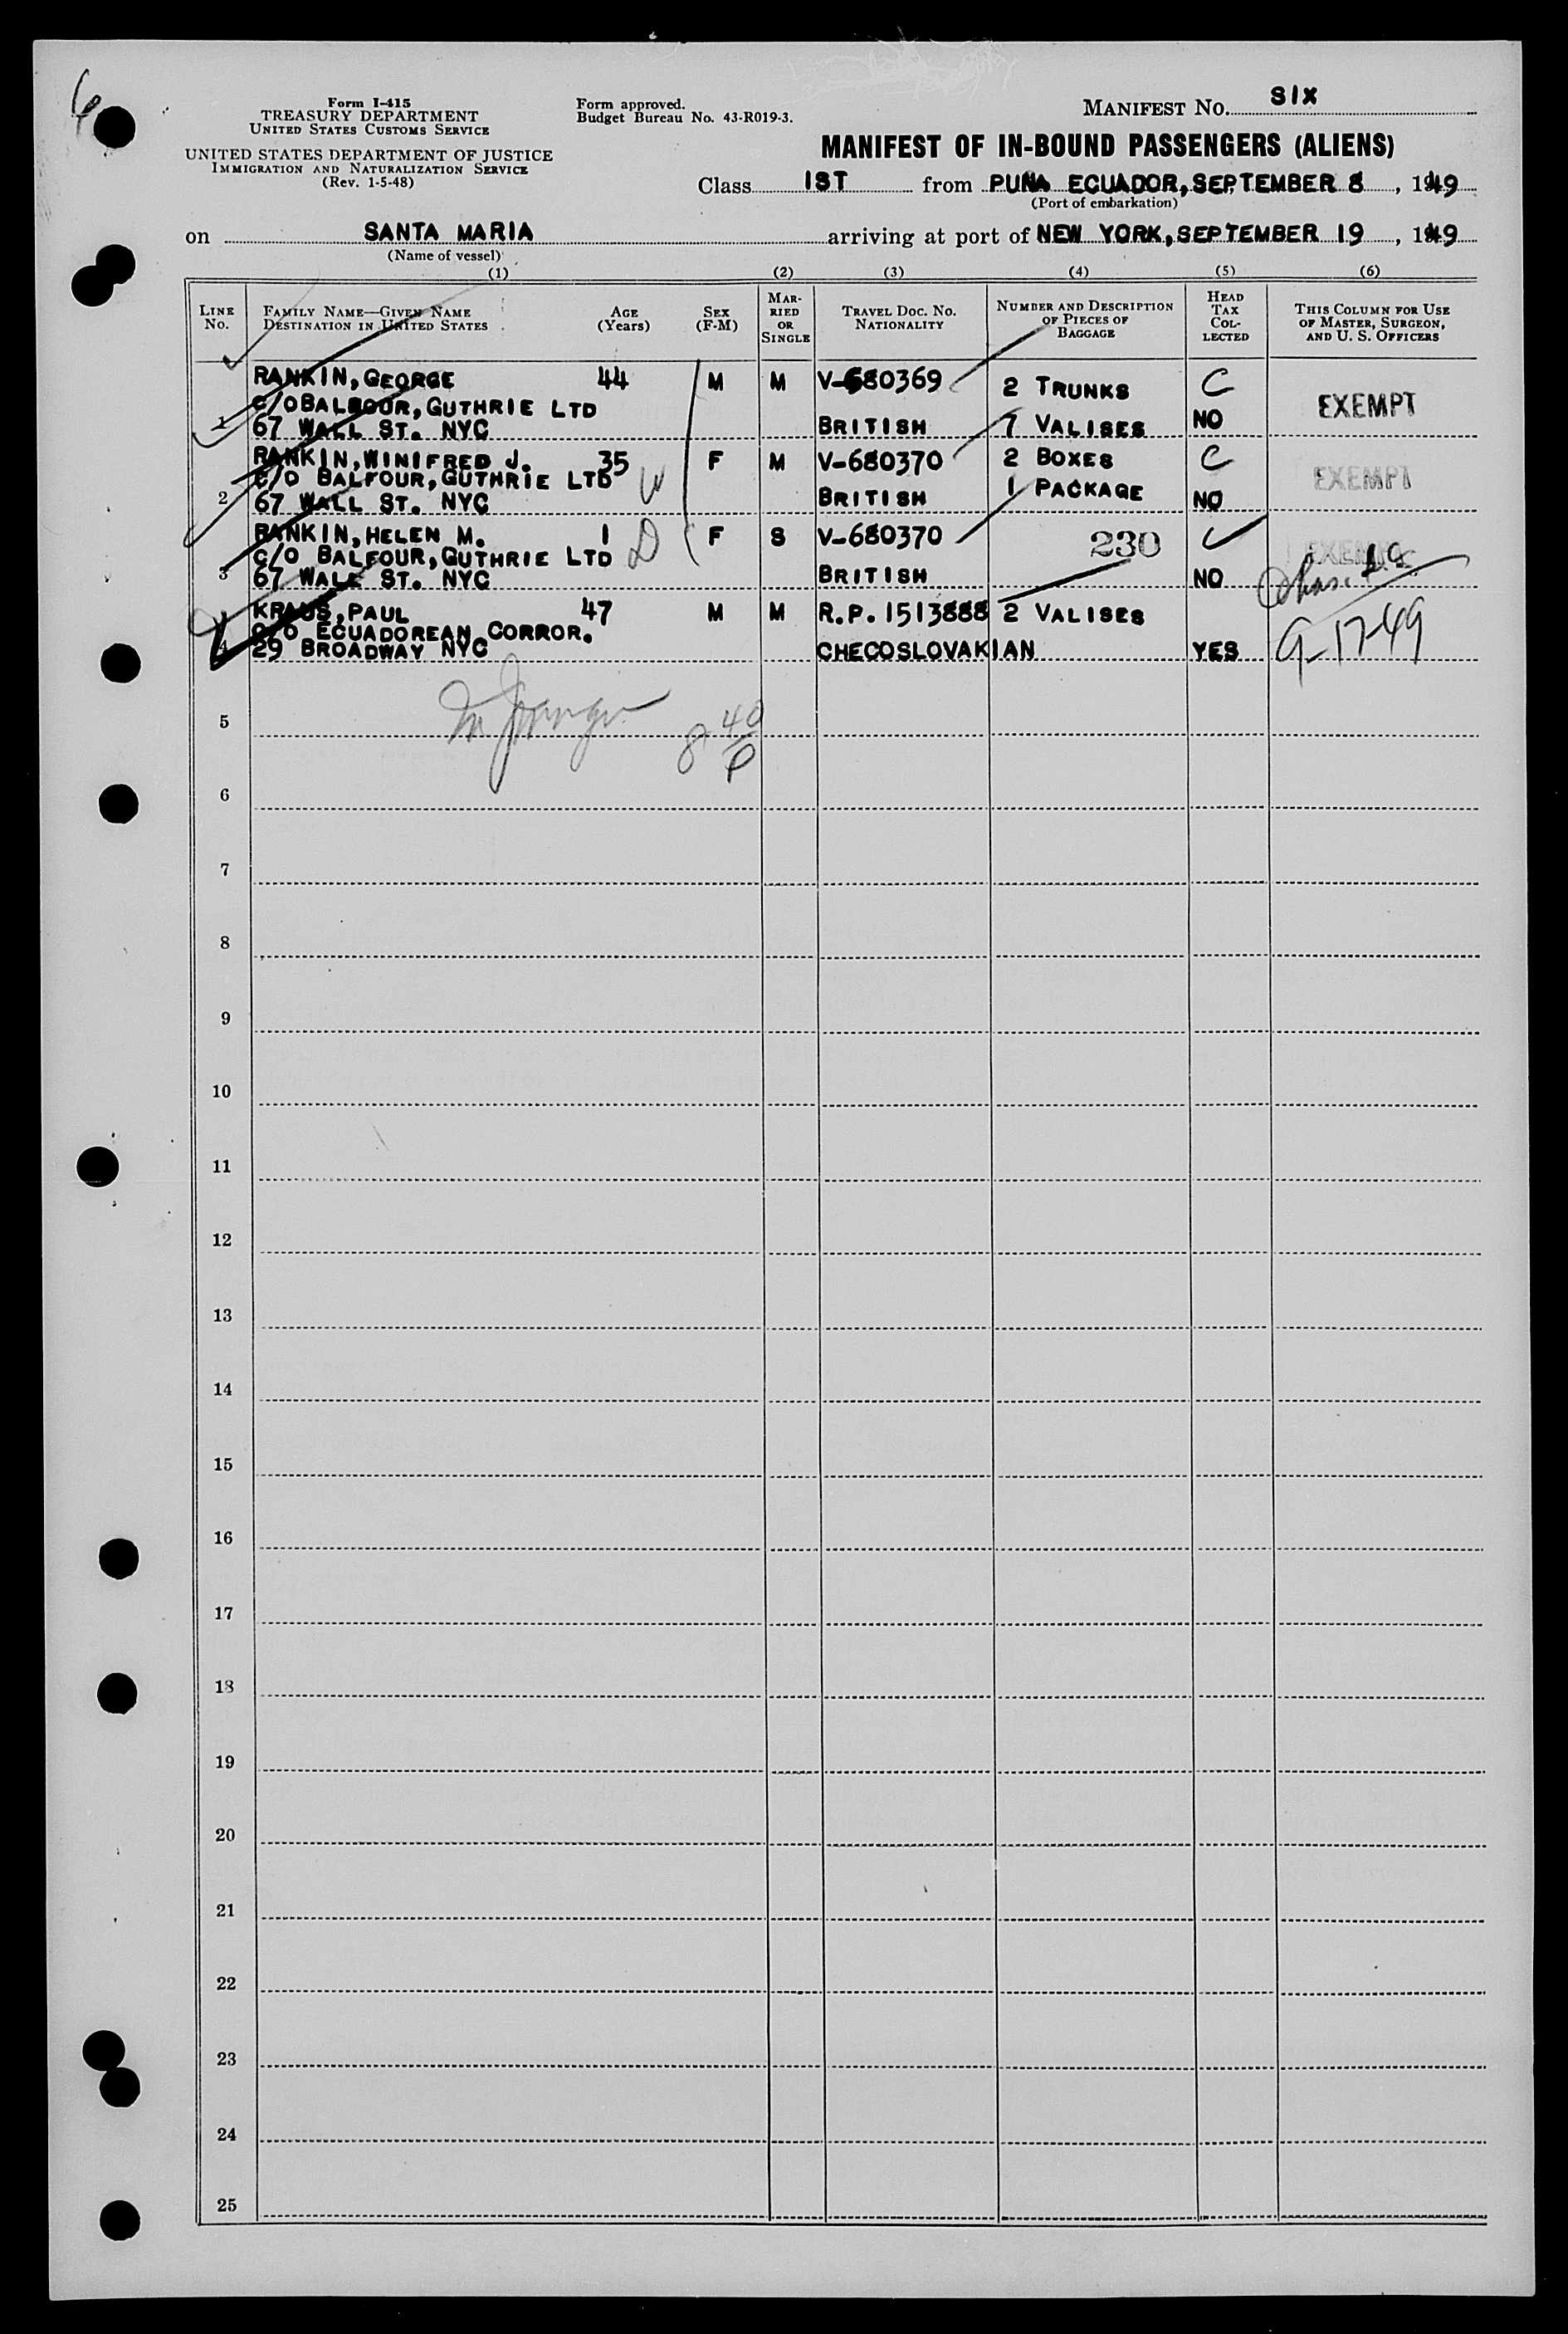 6
Form I-415
TREASURY DEPARTMENT
UNITED STATES CUSTOMS SERVICE
UNITED STATES DEPARTMENT OF JUSTICE
IMMIGRATION AND NATURALIZATION SERVICE
(Rev. 1-5-48)
Form approved.
Budget Bureau No. 43-R019-3.
MANIFEST NO. SIX
MANIFEST OF IN-BOUND PASSENGERS (ALIENS)
Class 1ST from PUNA ECUADOR, SEPTEMBER 8, 1949
(Port of embarkation)
on SANTA MARIA arriving at port of NEW YORK, SEPTEMBER 19, 1949
(Name of vessel)
(1) (2) (3) (4) (5) (6)
LINE NO.
FAMILY NAME—GIVEN NAME
DESTINATION IN UNITED STATES
AGE (Years)
SEX (F-M)
MARRIED OR SINGLE
TRAVEL DOC. NO.
NATIONALITY
NUMBER AND DESCRIPTION OF PIECES OF BAGGAGE
HEAD TAX COLLECTED
THIS COLUMN FOR USE OF MASTER, SURGEON, AND U. S. OFFICERS
RANKIN, GEORGE 44 M M V-680369 2 TRUNKS C
C/O BALFOUR, GUTHRIE LTD EXEMPT
1 67 WALL ST. NYC BRITISH 7 VALISES NO
RANKIN, WINIFRED J. 35 F M V-680370 2 BOXES C
C/O BALFOUR, GUTHRIE LTD W EXEMPT
2 67 WALL ST. NYC BRITISH 1 PACKAGE NO
RANKIN, HELEN M. 1 F S V-680370 230
C/O BALFOUR, GUTHRIE LTD D EXEMPT
3 67 WALL ST. NYC BRITISH NO
KRAUS, PAUL 47 M M R.P. 1513888 2 VALISES
C/O ECUADOREAN CORROR.
4 29 BROADWAY NYC CHECOSLOVAKIAN YES 9-17-49
5 8 40/P
6
7
8
9
10
11
12
13
14
15
16
17
18
19
20
21
22
23
24
25